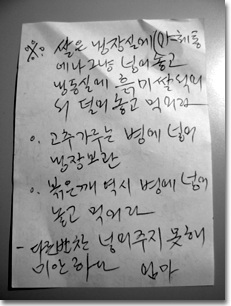 ※. 쌀은 냉장실에 (야채통
에나 그냥 넣어 놓고
냉동실에 흙미 쌀 식의
서 덜어 놓고 먹어라
o. 고추가루는 병에 넣어
냉장보관
o. 볶은깨 역시 병에 넣어
놓고 먹어라
- 다른반찬 넣어주지 못해
미안하다 엄마